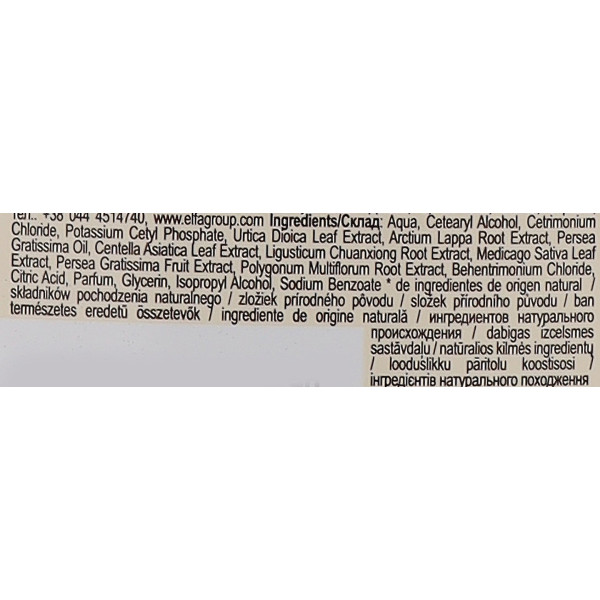 Тел.: +38 044 4514740, www.elfagroup.com Ingredients/Склад: Aqua, Cetearyl Alcohol, Cetrimonium
Chloride, Potassium Cetyl Phosphate, Urtica Dioica Leaf Extract, Arctium Lappa Root Extract, Persea
Gratissima Oil, Centella Asiatica Leaf Extract, Ligusticum Chuanxiong Root Extract, Medicago Sativa Leaf
Extract, Persea Gratissima Fruit Extract, Polygonum Multiflorum Root Extract, Behentrimonium Chloride,
Citric Acid, Parfum, Glycerin, Isopropyl Alcohol, Sodium Benzoate * de ingredientes de origen natural /
składników pochodzenia naturalnego / zložiek prírodného pôvodu / složek přírodního původu / ban
természetes eredetű összetevők / ingrediente de origine naturală / ингредиентов натурального
происхождения / dabīgas izcelsmes
sastāvdaļu / natūralios kilmės ingredientų
/ looduslikku päritolu koostisosi /
інгредієнтів натурального походження